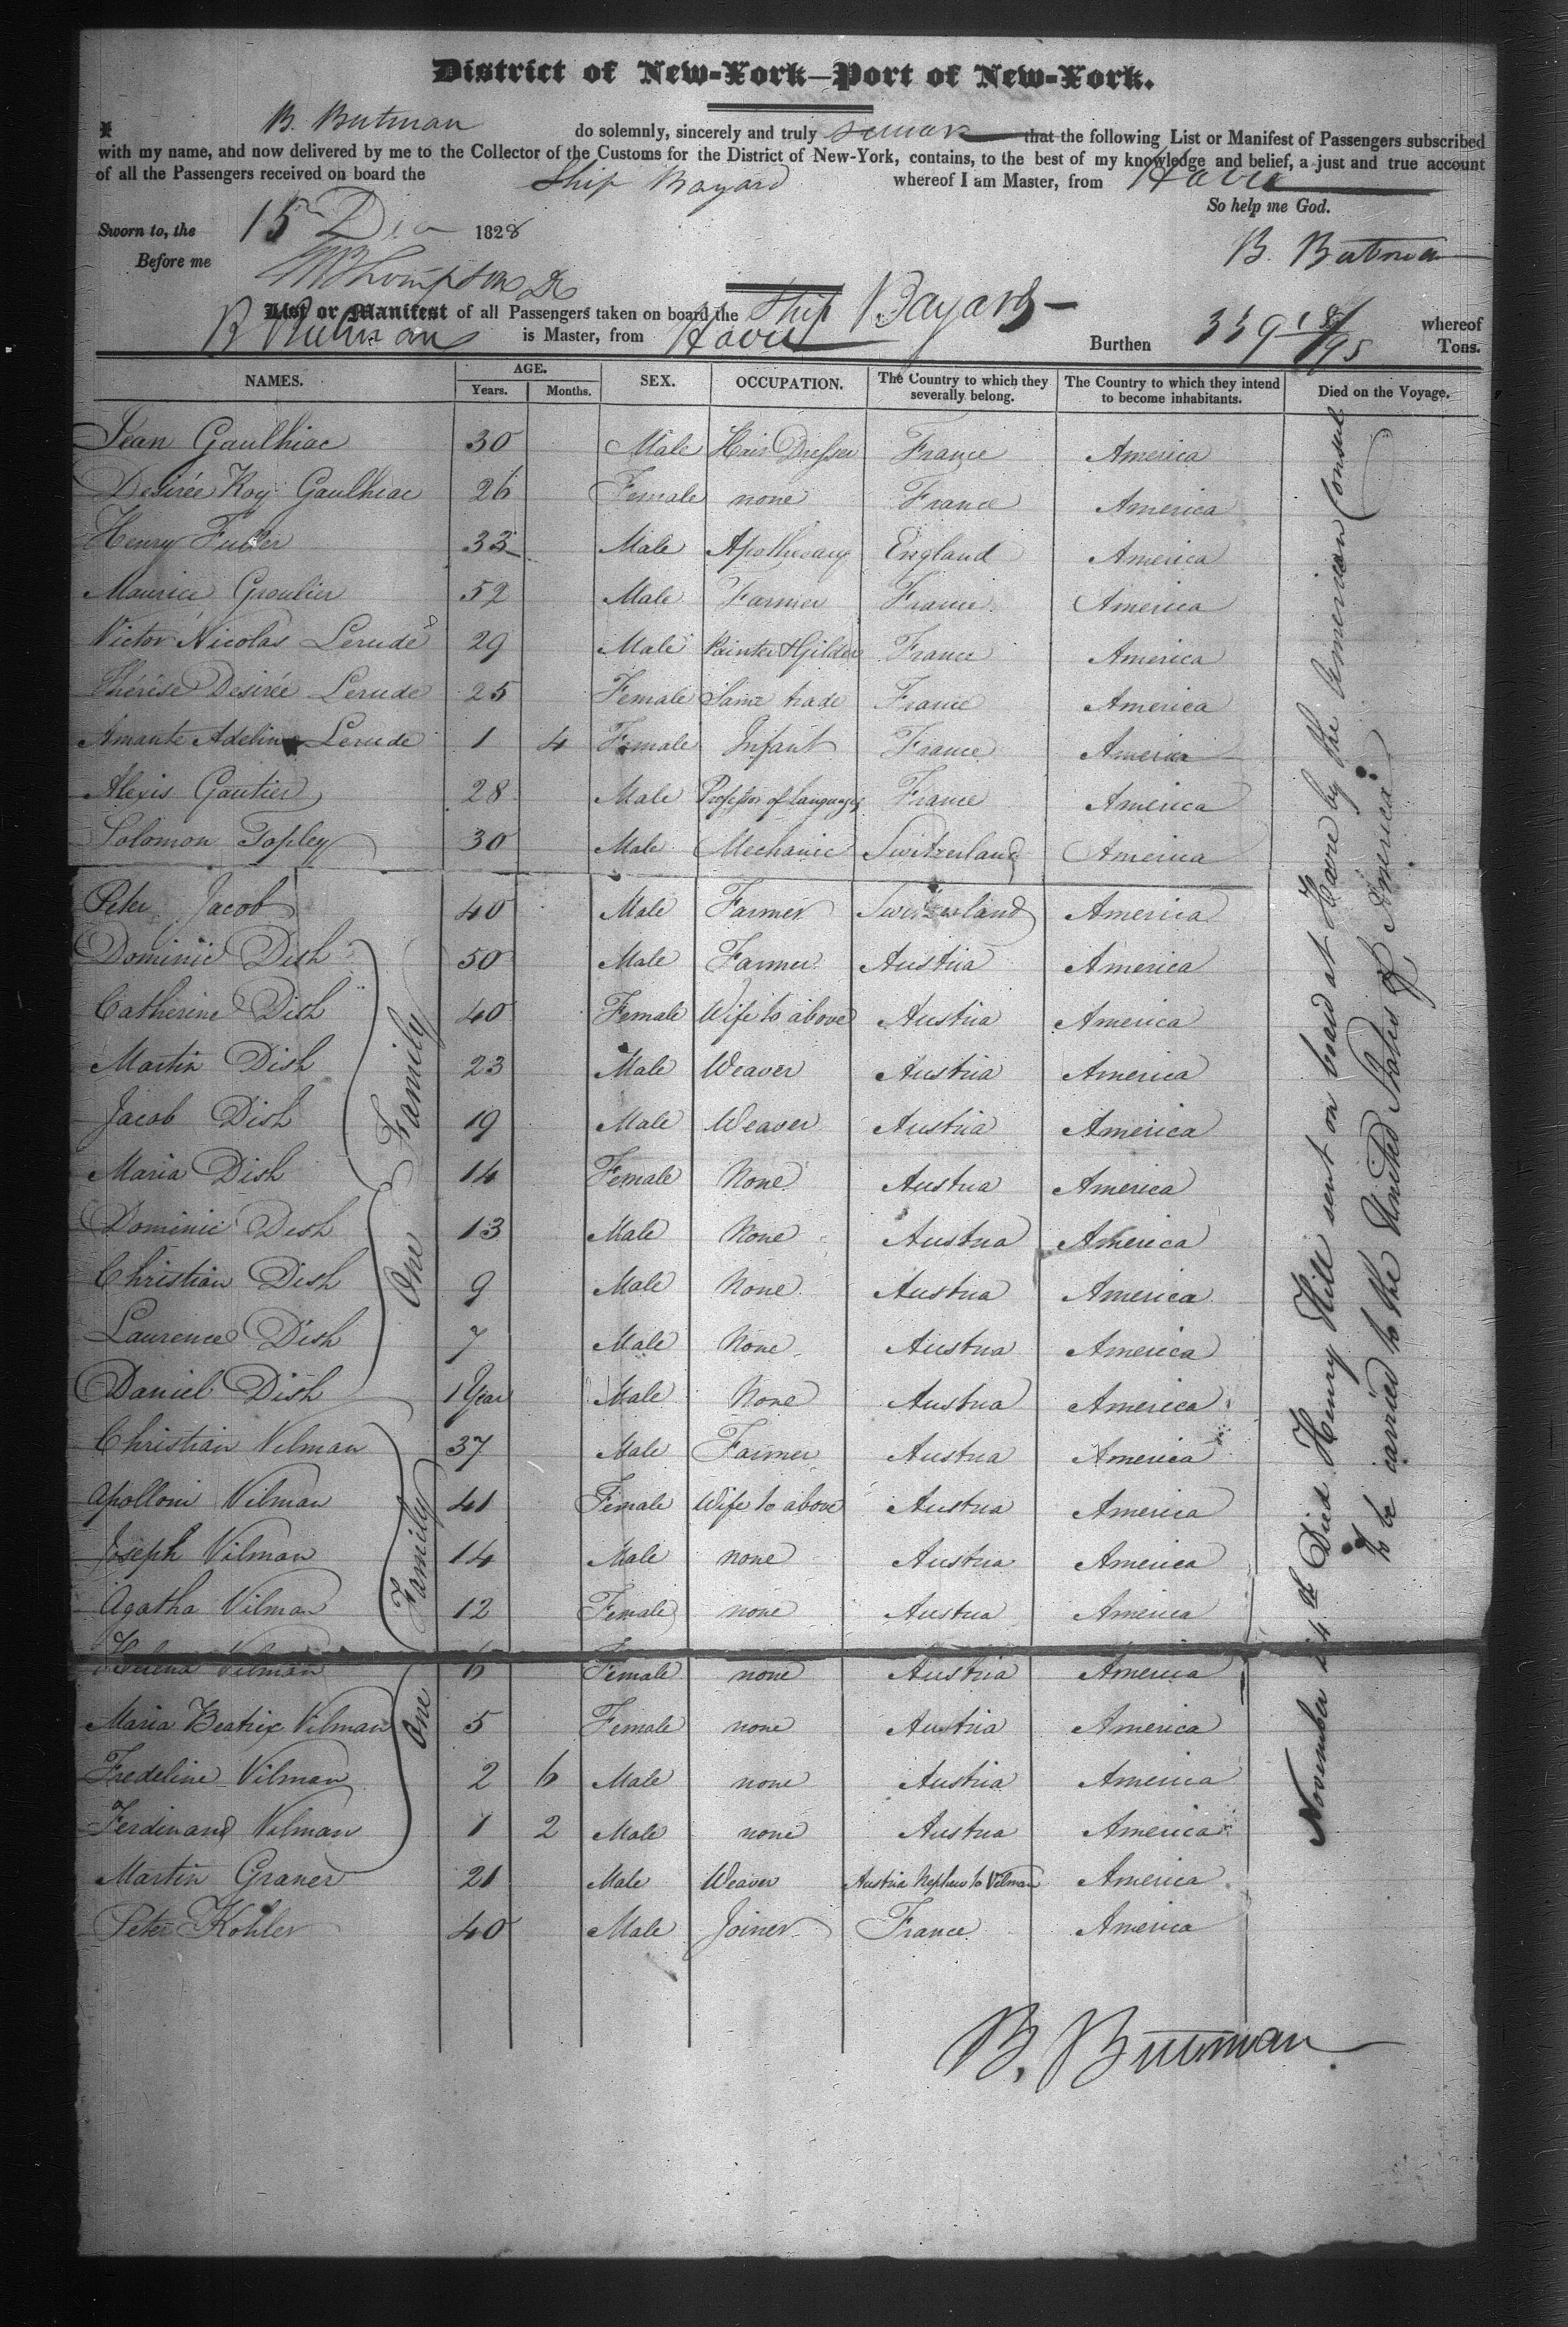 District of New-York—Port of New-York.
I B. Butman do solemnly, sincerely and truly swear that the following List or Manifest of Passengers subscribed
with my name, and now delivered by me to the Collector of the Customs for the District of New-York, contains, to the best of my knowledge and belief, a just and true account
of all the Passengers received on board the Ship Bayard whereof I am Master, from Havre
So help me God.
Sworn to, the 15 Dec 1828
B. Butman
Before me Thompson
List or Manifest of all Passengers taken on board the Ship Bayard whereof
B Butman is Master, from Havre Burthen 339 18/95 Tons.
NAMES. AGE. Years. Months. SEX. OCCUPATION. The Country to which they severally belong. The Country to which they intend to become inhabitants. Died on the Voyage.
Jean Gaulhiac 30 Male Hair Dresser France America
Desirée Roy Gaulhiac 26 Female none France America
Henry 33 Male Apothecary England America
Maurice Groulier 52 Male Farmer France America
Victor Nicolas Lerude 29 Male Painter & Gilder France America
Thérése Desirée Lerude 25 Female Same trade France America
Amante Adeline Lerude 1 4 Female Infant France America
Alexis Gautier 28 Male Professor of Languages France America
Solomon Topley 30 Male Mechanic Switzerland America
Peter Jacob 40 Male Farmer Switzerland America
Dominic Dish 50 Male Farmer Austria America
Catherine Dish 40 Female Wife to above Austria America
Martin Dish 23 Male Weaver Austria America
Jacob Dish 19 Male Weaver Austria America
Maria Dish 14 Female None Austria America
Dominic Dish 13 Male None Austria America
Christian Dish 9 Male None Austria America
Laurence Dish 7 Male None Austria America
Daniel Dish 1 Year Male None Austria America
One Family
Christian Vilman 37 Male Farmer Austria America
Apolloni Vilman 41 Female Wife to above Austria America
Joseph Vilman 14 Male none Austria America
Agatha Vilman 12 Female none Austria America
Helena Vilman 6 Female none Austria America
Maria Beatrix Vilman 5 Female none Austria America
Fredeline Vilman 2 6 Male none Austria America
Ferdinand Vilman 1 2 Male none Austria America
One Family
Martin Graner 21 Male Weaver Austria Nephew to Vilman America
Peter Kohler 40 Male Joiner France America
November 14th Died Henry Hill sent on board at Havre by the American Consul
to be carried to the United States of America
B. Butman